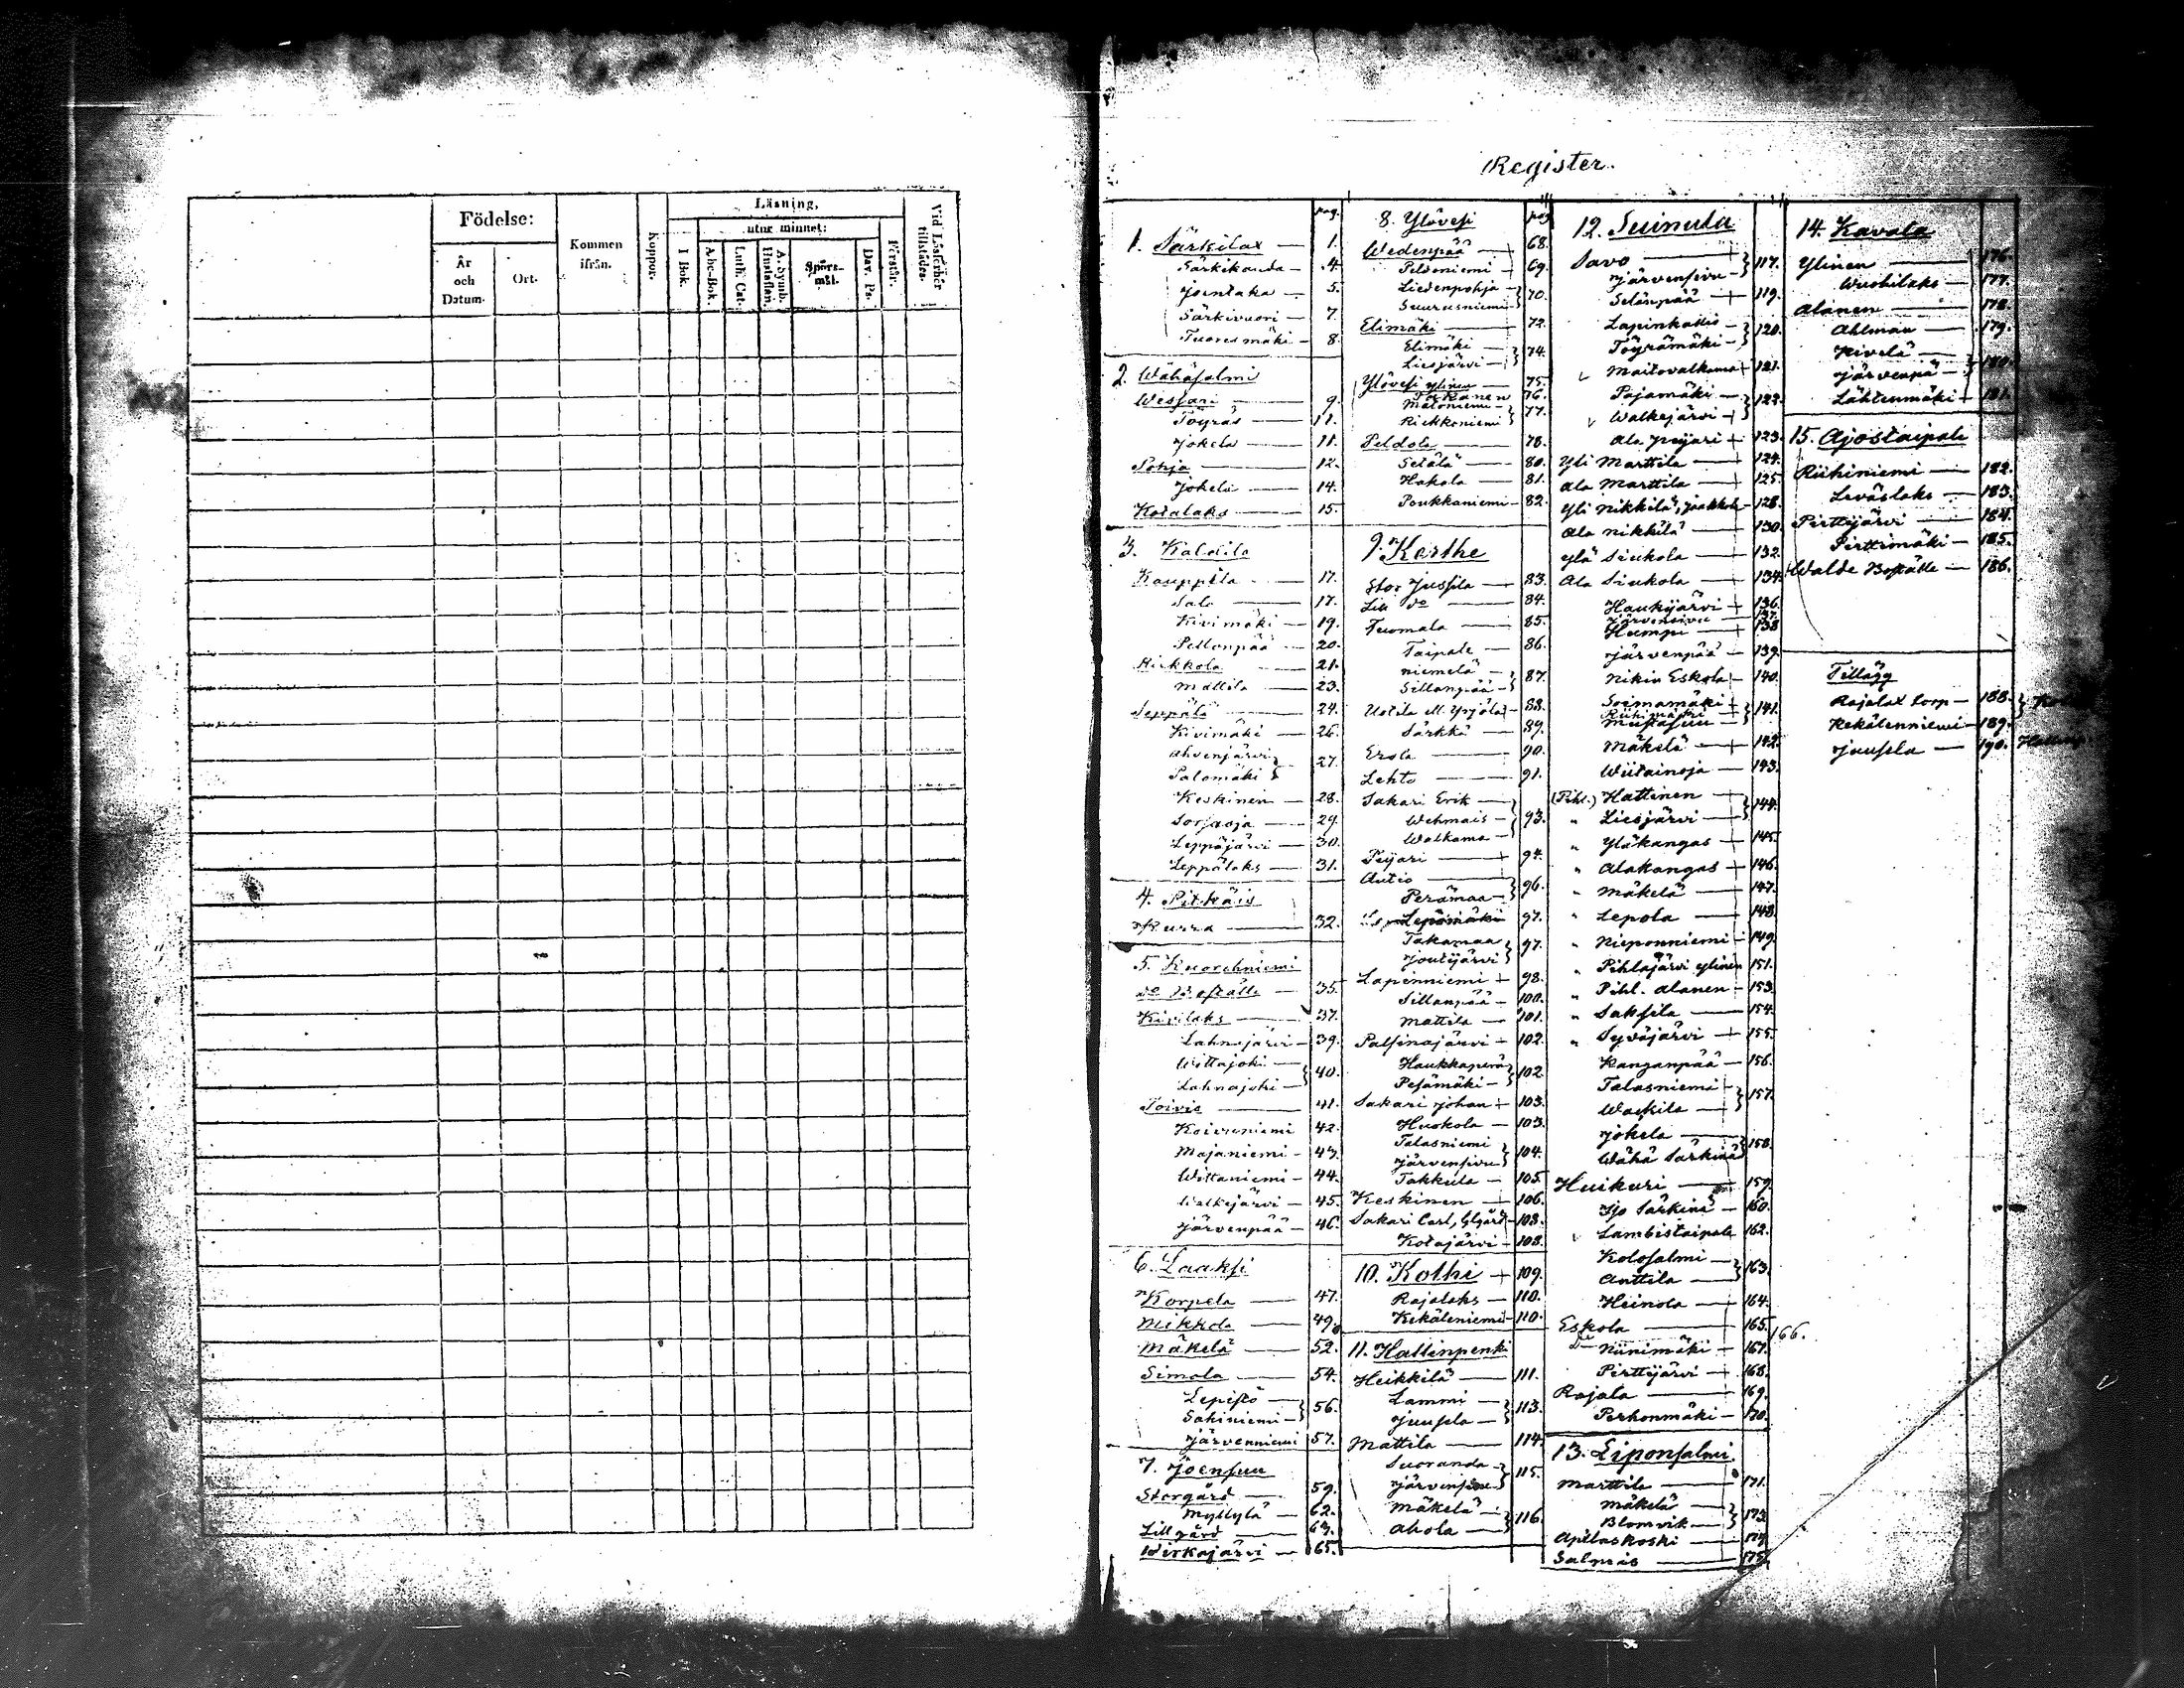 Födelse:
År
och
Datum.
Ort.
Kommen
ifrån.
Koppor.
Läsning,
utur minnet:
I Bok.
Abc-Bok.
Luth. Cat.
A. Symb.
Hustaflan.
Spörs-
mål.
Dav. Ps.
Förstår.
Vid Läseförhör
tillstädes.
Register.
pag.
1. Särkilax — 1.
Särkikanda — 4.
Joentaka — 5.
Särkivuori — 7.
Tuoresmäki — 8.
2. Wähäsalmi
Wessari — 9.
Töyräs — 11.
Jokela — 11.
Pohja — 12.
Jokela — 14.
Kotalaks — 15.
3. Kaldila
Kauppila — 17.
Salo — 17.
Kivimäki — 19.
Pellonpää — 20.
Hirkkola — 21.
Mattila — 23.
Seppälä — 24.
Kivimäki — 26.
Ahvenjärvi } 27.
Salomäki }
Keskinen — 28.
Sorjaoja — 29.
Leppäjärvi — 30.
Leppälaks — 31.
4. Pitkäis
Kurra — 32.
5. Kuorehniemi
do Boställe — 35.
Kivilaks — 37.
Lahnajärvi — 39.
Wittajoki — } 40.
Lahnajoki — }
Toivis — 41.
Koivuniemi 42.
Majaniemi — 43.
Wittaniemi — 44.
Walkejärvi — 45.
Järvenpää — 46.
6. Laaksi
Korpela — 47.
Mikkola — 49.
Mäkelä — 52.
Simola — 54.
Lepistö — } 56.
Sahiniemi — }
Järvenniemi 57.
7. Joensuu
Storgård — 59.
Myllylä — 62.
Lillgård — 63.
Wirkajärvi — 65.
pag
8. Ylövesi
Wedenpää — 68.
Peldoniemi — 69.
Liedenpohja — } 70.
Suurusniemi }
Elimäki — 72.
Elimäki — } 74.
Liesjärvi — }
Ylövesi Ylinen — 75.
Toikanen 76.
Mäloniemi — } 77.
Riekkoniemi }
Peldola — 78.
Setälä — 80.
Hakola — 81.
Poukkaniemi — 82.
9. Kerthe
Stor Jussila — 83.
Lill do — 84.
Tuomala — 85.
Taipale — 86.
Niemelä — } 87.
Sillanpää — }
Uotila M. Yrjölä — 88.
Särkkä — 89.
Erola — 90.
Lehto — 91.
Sakari Erik — } 93.
Wehmais — }
Walkama — }
Peijari — 94.
Autio — } 96.
Perämaa — }
Lepämäki 97.
Takamaa } 97.
Joutijärvi }
Lapinniemi + 98.
Sillanpää — 100.
Mattila — 101.
Palsinajärvi + 102.
Haukkaperä } 102
Pesämäki — }
Sakari Johan + 103.
Huokola — 103.
Talasniemi } 104.
Järvensivu }
Takkula — 105.
Keskinen — 106.
Sakari Carl, Glgård — 108.
Kotajärvi — 108.
10. Kothi + 109.
Rajalaks — 110.
Kekäleniemi 110.
11. Hallinpenki
Heikkilä — 111.
Lammi — } 113.
Juusela — }
Mattila — 114.
Suoranda — } 115.
Järvensivu }
Mäkelä — } 116.
Ahola — }
12. Suinula
Savo — } 117.
Järvensivu — }
Selänpää + 119.
Lapinkallio — } 120.
Töyrämäki — }
Maitovalkama 121.
Pajamäki — } 122.
Walkejärvi + }
Ala Peijari + 123.
Yli Marttila — 124.
Ala Marttila — 125.
Yli Nikkilä, Jaakkola — 128.
Ala Nikkilä — 130.
Ylä Siukola — 132.
Ala Siukola — 134.
Haukijärvi + 136.
Järvensivu — 137.
Humpu — 138
Järvenpää — 139.
Nikin Eskola — 140.
Soinamäki + } 141.
Riihimäki }
Mukasuu — }
Mäkelä — 142.
Wiitainoja — 143.
(Pihl.) Hattinen — } 144.
" Liesjärvi — }
" Yläkangas — 145.
" Alakangas + 146.
" Mäkelä — 147.
" Lepola — 148.
" Nieponniemi — 149.
" Pihlajärvi Ylinen 151.
" Pihl. Alanen — 153.
" Saksila — 154.
" Syväjärvi + 155.
Kanganpää — 156.
Talasniemi — } 157.
Waskila — }
Jokela — } 158.
Wähä Särkinä }
Huikuri — 159.
Iso Särkinä — 160.
Lambistaipale 162.
Kolosalmi — } 163.
Anttila — }
Heinola — 164.
Eskola — 165. 166.
do Niinimäki + 167.
Perttijärvi + 168.
Rajala — 169.
Perhonmäki — 170.
13. Liponsalmi
Marttila — 171.
Mäkelä — } 173
Blomvik — }
Apilaskoski — 174.
Salmis — 175.
14. Kavala
Ylinen — 176.
Wuohilaks — 177.
Alanen — 178.
Ahlman — 179.
Kivelä — } 180.
Järvenpä — }
Lähteenmäki + 181.
15. Ajostaipale
Riihiniemi — 182.
Leväslaks — 183.
Pirttijärvi — 184.
Pirttimäki — 185.
Walde Boställe — 186.
Tillägg
Rajalax torp — 188. }
Kekälenniemi — 189. }
Juusela — 190.